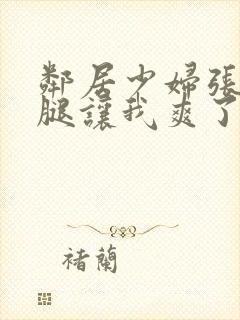 鄰居少婦張
腿讓我爽了
褚蘭